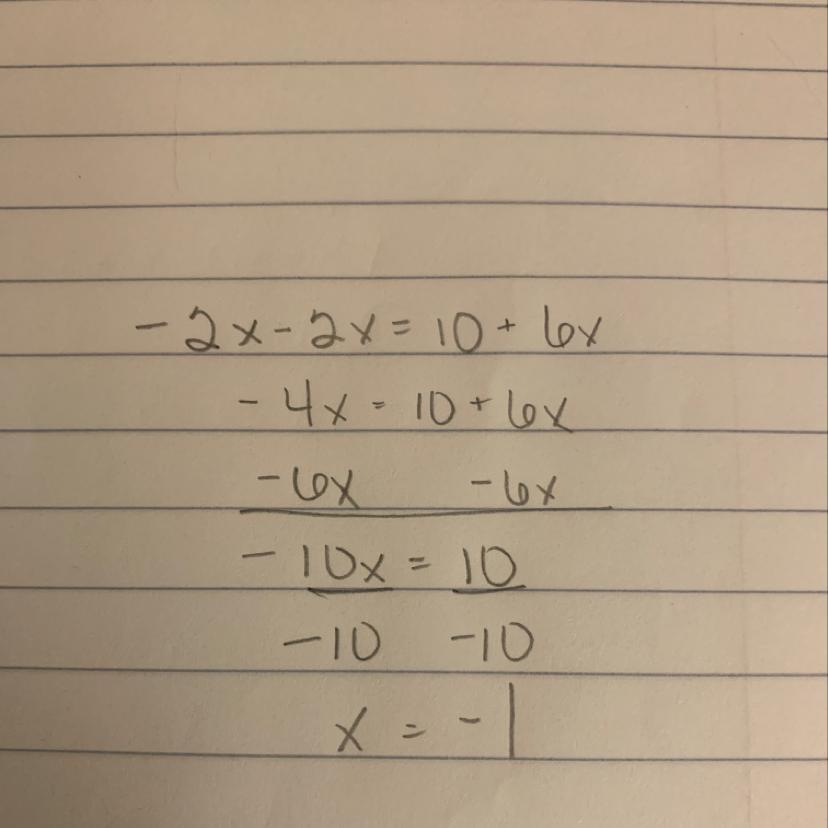 -2x-2x=10+6x
-4x=10+6x
-6x -6x
-10x=10
-10 -10
x=-1